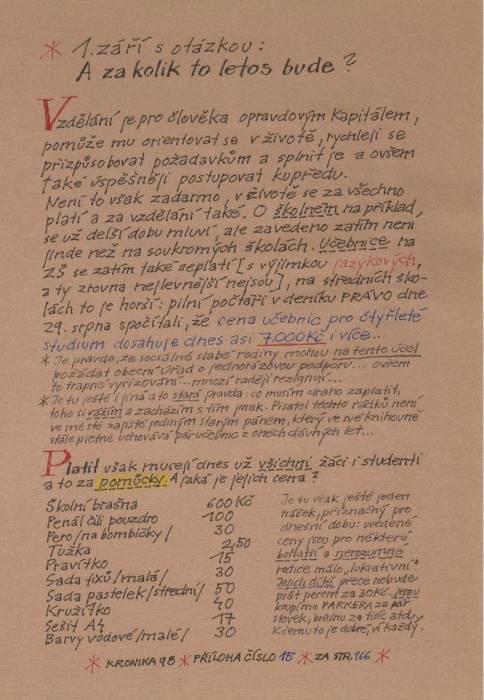 * 1. září s otázkou:
A za kolik to letos bude?
Vzdělání je pro člověka opravdovým kapitálem,
pomůže mu orientovat se v životě, rychleji se
přizpůsobovat požadavkům a splnit je a ovšem
také úspěšněji postupovat kupředu.
Není to však zadarmo, v životě se za všechno
platí a za vzdělání také. O školném na příklad,
se už delší dobu mluví, ale zavedeno zatím není
jinde než na soukromých školách. Učebnice na
ZŠ se zatím také neplatí [s výjimkou jazykových,
a ty zrovna nejlevnější nejsou], na středních ško-
lách to je horší: pilní počtáři v deníku PRÁVO dne
29. srpna spočítali, že cena učebnic pro čtyřleté
studium dosahuje dnes asi 7.000 Kč i více...
* Je pravda, že sociálně slabé rodiny mohou na tento účel
požádat obecní úřad o jednorázovou podporu... ovšem
to trapné vyřizování... mnozí raději rezignují...
* Je tu ještě i jiná a to stará pravda: co musím draho zaplatit,
toho si vážím a zacházím s tím jinak. Pisatel těchto řádků není
ve městě zajisté jediným starým pánem, který ve své knihovně
stále pietně uchovává pár učebnic z oněch dávných let...
Platit však musejí dnes už všichni žáci i studenti
a to za pomůcky. A jaká je jejich cena?
Školní brašna 600 Kč
Penál čili pouzdro 100
Pero /na bombičky/ 30
Tužka 2,50
Pravítko 15
Sada fixů /malá/ 30
Sada pastelek /střední/ 50
Kružítko 40
Sešit A4 17
Barvy vodové /malé/ 30
Je tu však ještě jeden
háček, příznačný pro
dnešní dobu: uvedené
ceny jsou pro některé
bohatší a nerozumné
rodiče málo „lukrativní"
Jejich dítě přece nebude
psát perem za 30 Kč. Jemu
koupíme PARKERA za pár
stovek, brašnu za tisíc atdy.
K čemu to je dobré, ví každý.
* KRONIKA 98 * PŘÍLOHA ČÍSLO 15 * ZA STR. 166 *